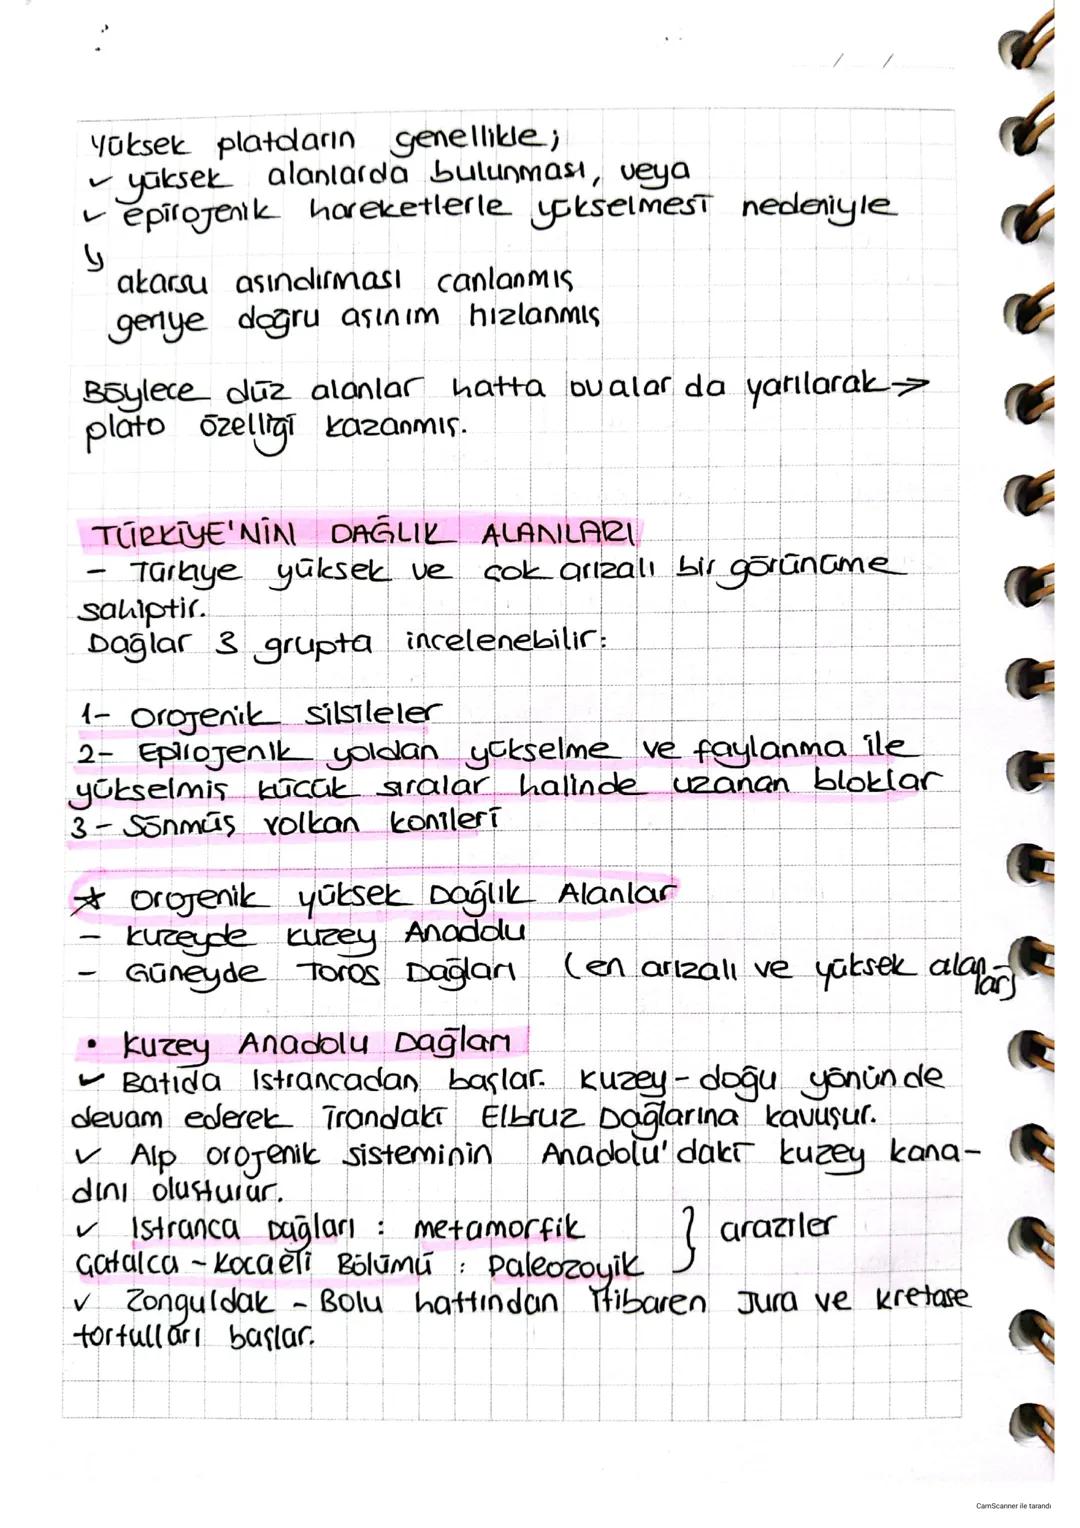 / /
Yüksek platoların genellikle;
✓ yüksek alanlarda bulunması, veya
✓ epirojenik hareketlerle yükselmesi nedeniyle
↳
akarsu aşındırması canlanmış
geriye doğru aşınım hızlanmış
Böylece düz alanlar hatta ovalar da yarılarak →
plato özelliği kazanmış.
TÜRKİYE'NİN DAĞLIK ALANLARI
- Türkiye yüksek ve çok arızalı bir görünüme
sahiptir.
Dağlar 3 grupta incelenebilir:
1- Orojenik silsileler
2- Epirojenik yoldan yükselme ve faylanma ile
yükselmiş küçük sıralar halinde uzanan bloklar
3- Sönmüş volkan konileri
* Orojenik yüksek Dağlık Alanlar
- Kuzeyde Kuzey Anadolu
- Güneyde Toros Dağları (en arızalı ve yüksek alan-
lar)
• Kuzey Anadolu Dağları
✓ Batıda Istrancadan başlar. Kuzey-doğu yönünde
devam ederek İrandaki Elbruz Dağlarına kavuşur.
✓ Alp orojenik sisteminin Anadolu'daki kuzey kana-
dını oluşturur.
✓ Istranca Dağları : metamorfik } araziler
Çatalca - Kocaeli Bölümü : Paleozoyik
✓ Zonguldak - Bolu hattından itibaren Jura ve Kretase
tortulları başlar.
CamScanner ile tarandı